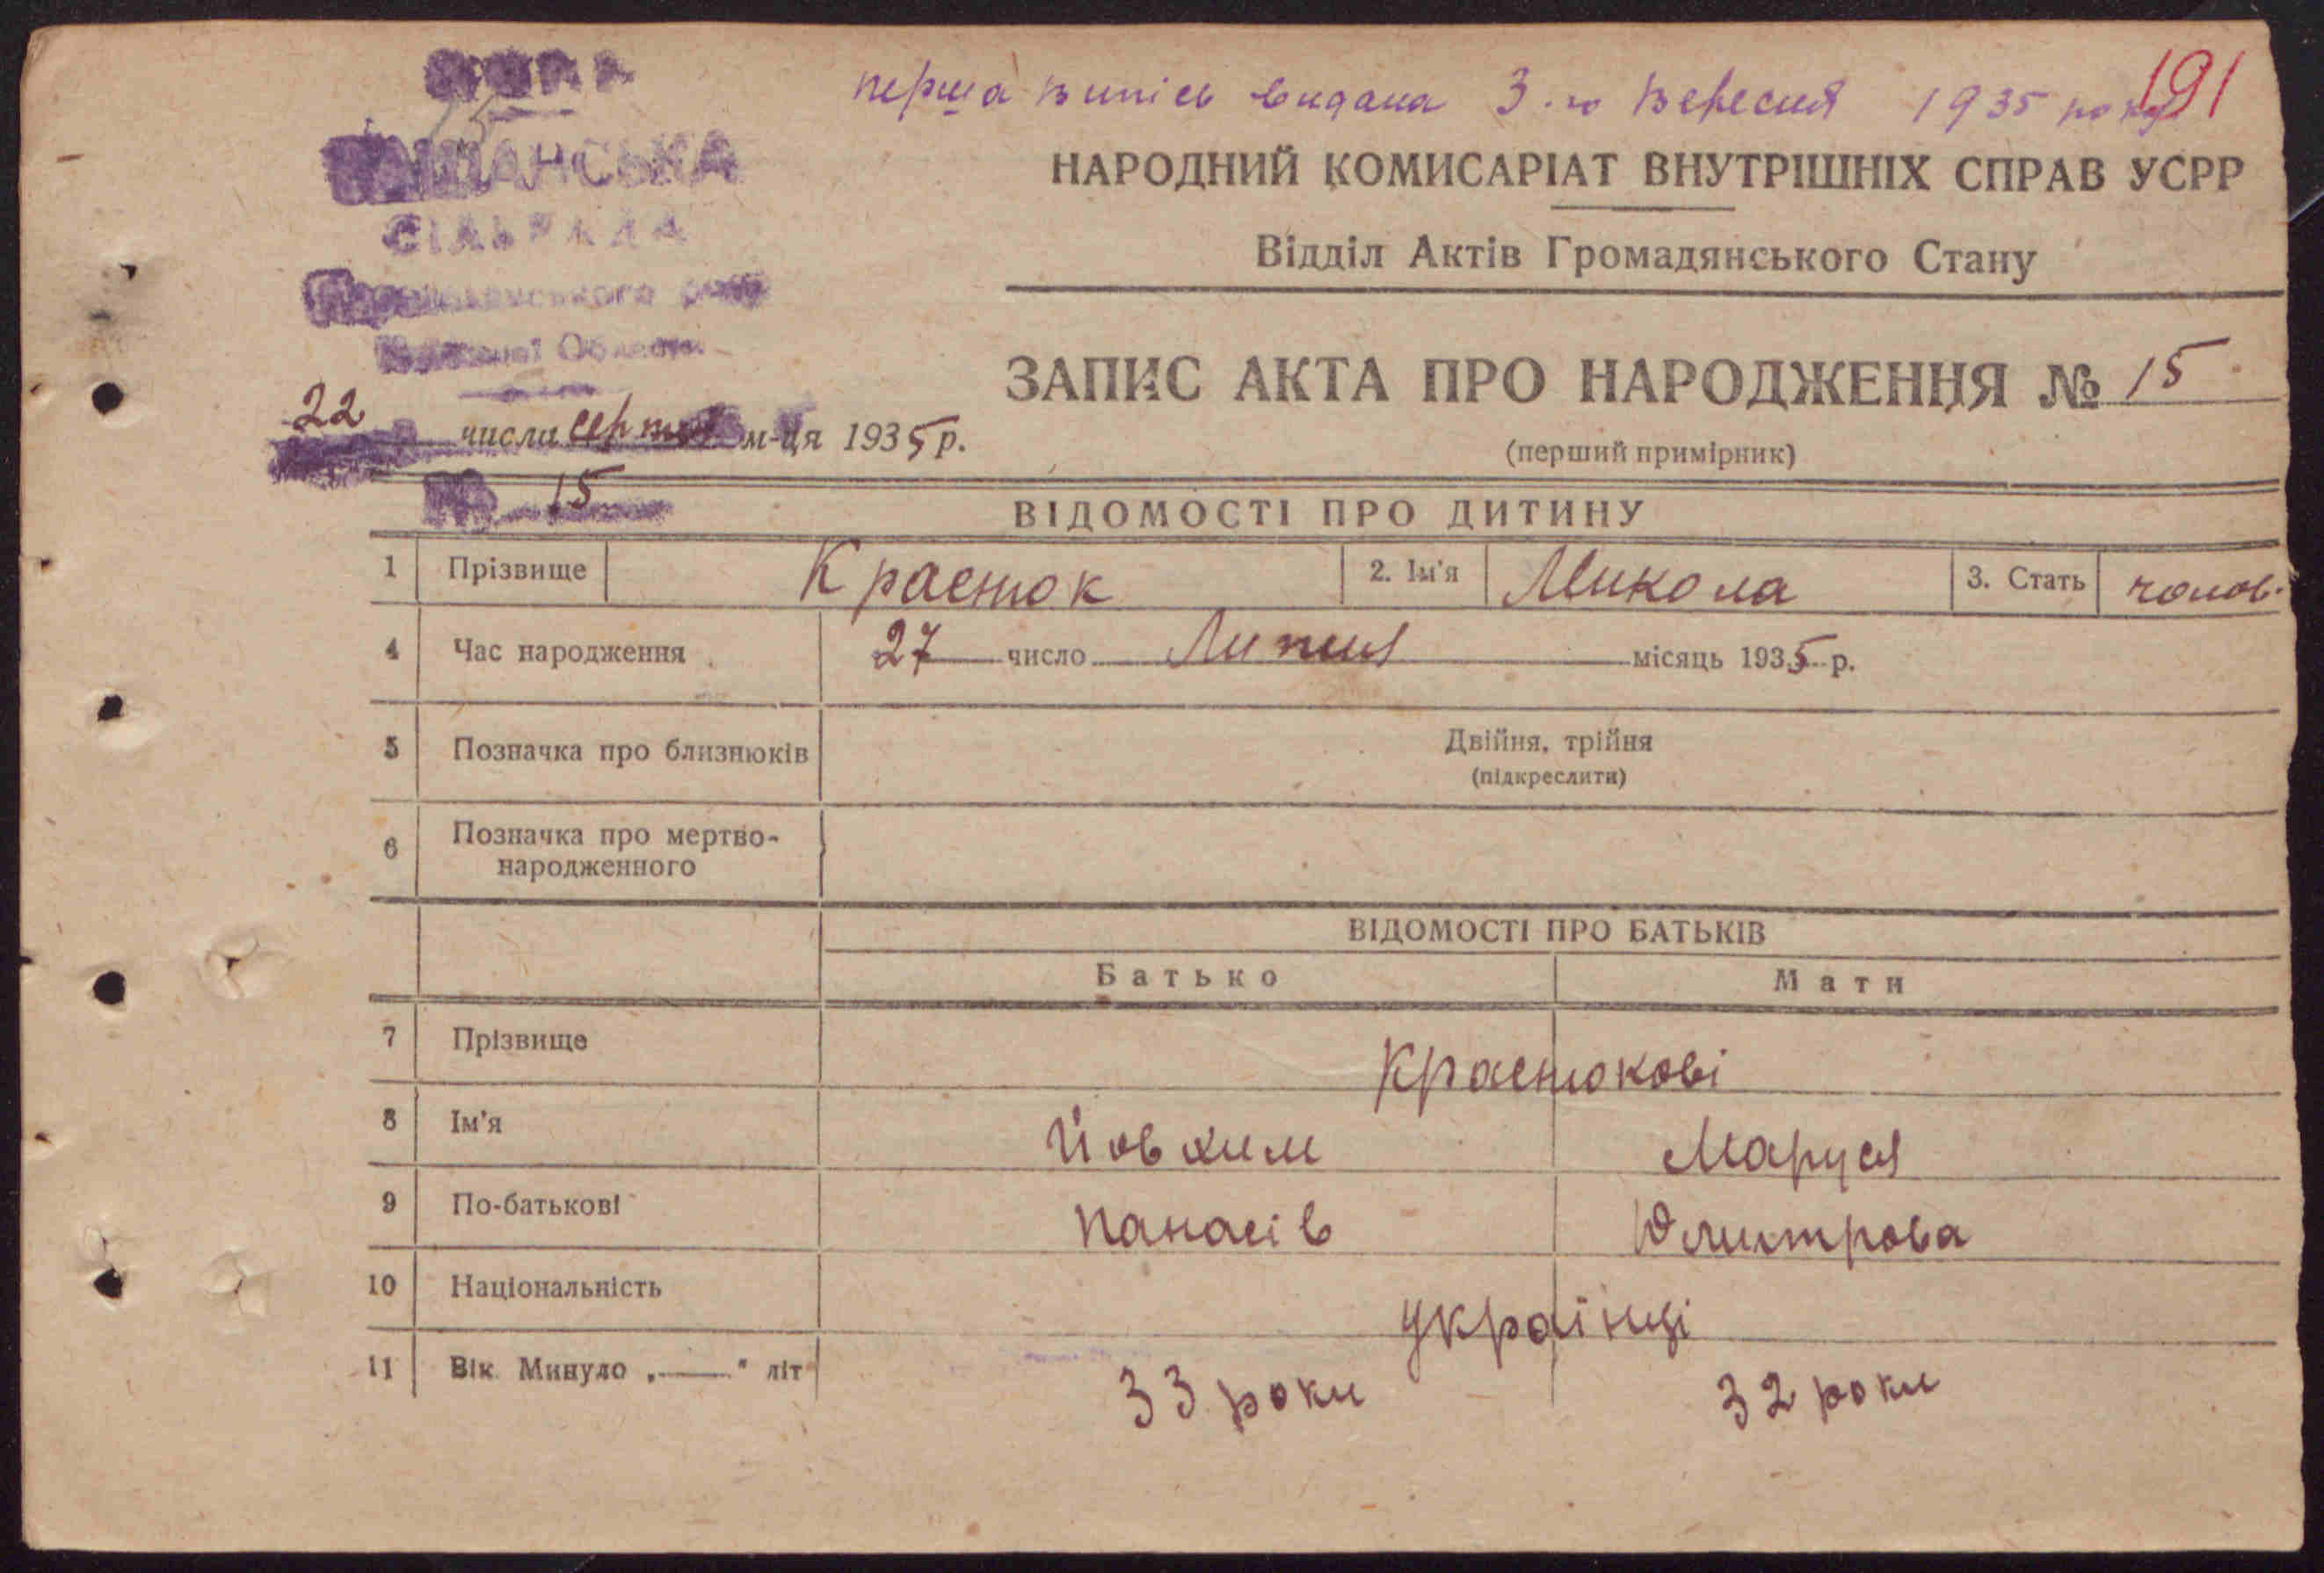 перша випісь видана 3-го Вересня 1935 року
191
НАРОДНИЙ КОМИСАРІАТ ВНУТРІШНІХ СПРАВ УСРР
Відділ Актів Громадянського Стану
СІЛЬРАДА
ЗАПИС АКТА ПРО НАРОДЖЕННЯ № 15
22 числа серпня м-ця 1935 р.
(перший примірник)
15
ВІДОМОСТІ ПРО ДИТИНУ
1 Прізвище Краснюк 2. Ім'я Микола 3. Стать чолов.
4 Час народження 27 число Липня місяць 1935 р.
5 Позначка про близнюків Двійня, трійня
(підкреслити)
6 Позначка про мертво-
народженного
ВІДОМОСТІ ПРО БАТЬКІВ
Батько Мати
7 Прізвище Краснюкові
8 Ім'я Йовхим Маруся
9 По-батькові Панасів Дмитрова
10 Національність українці
11 Вік Минуло „——" літ 33 роки 32 роки